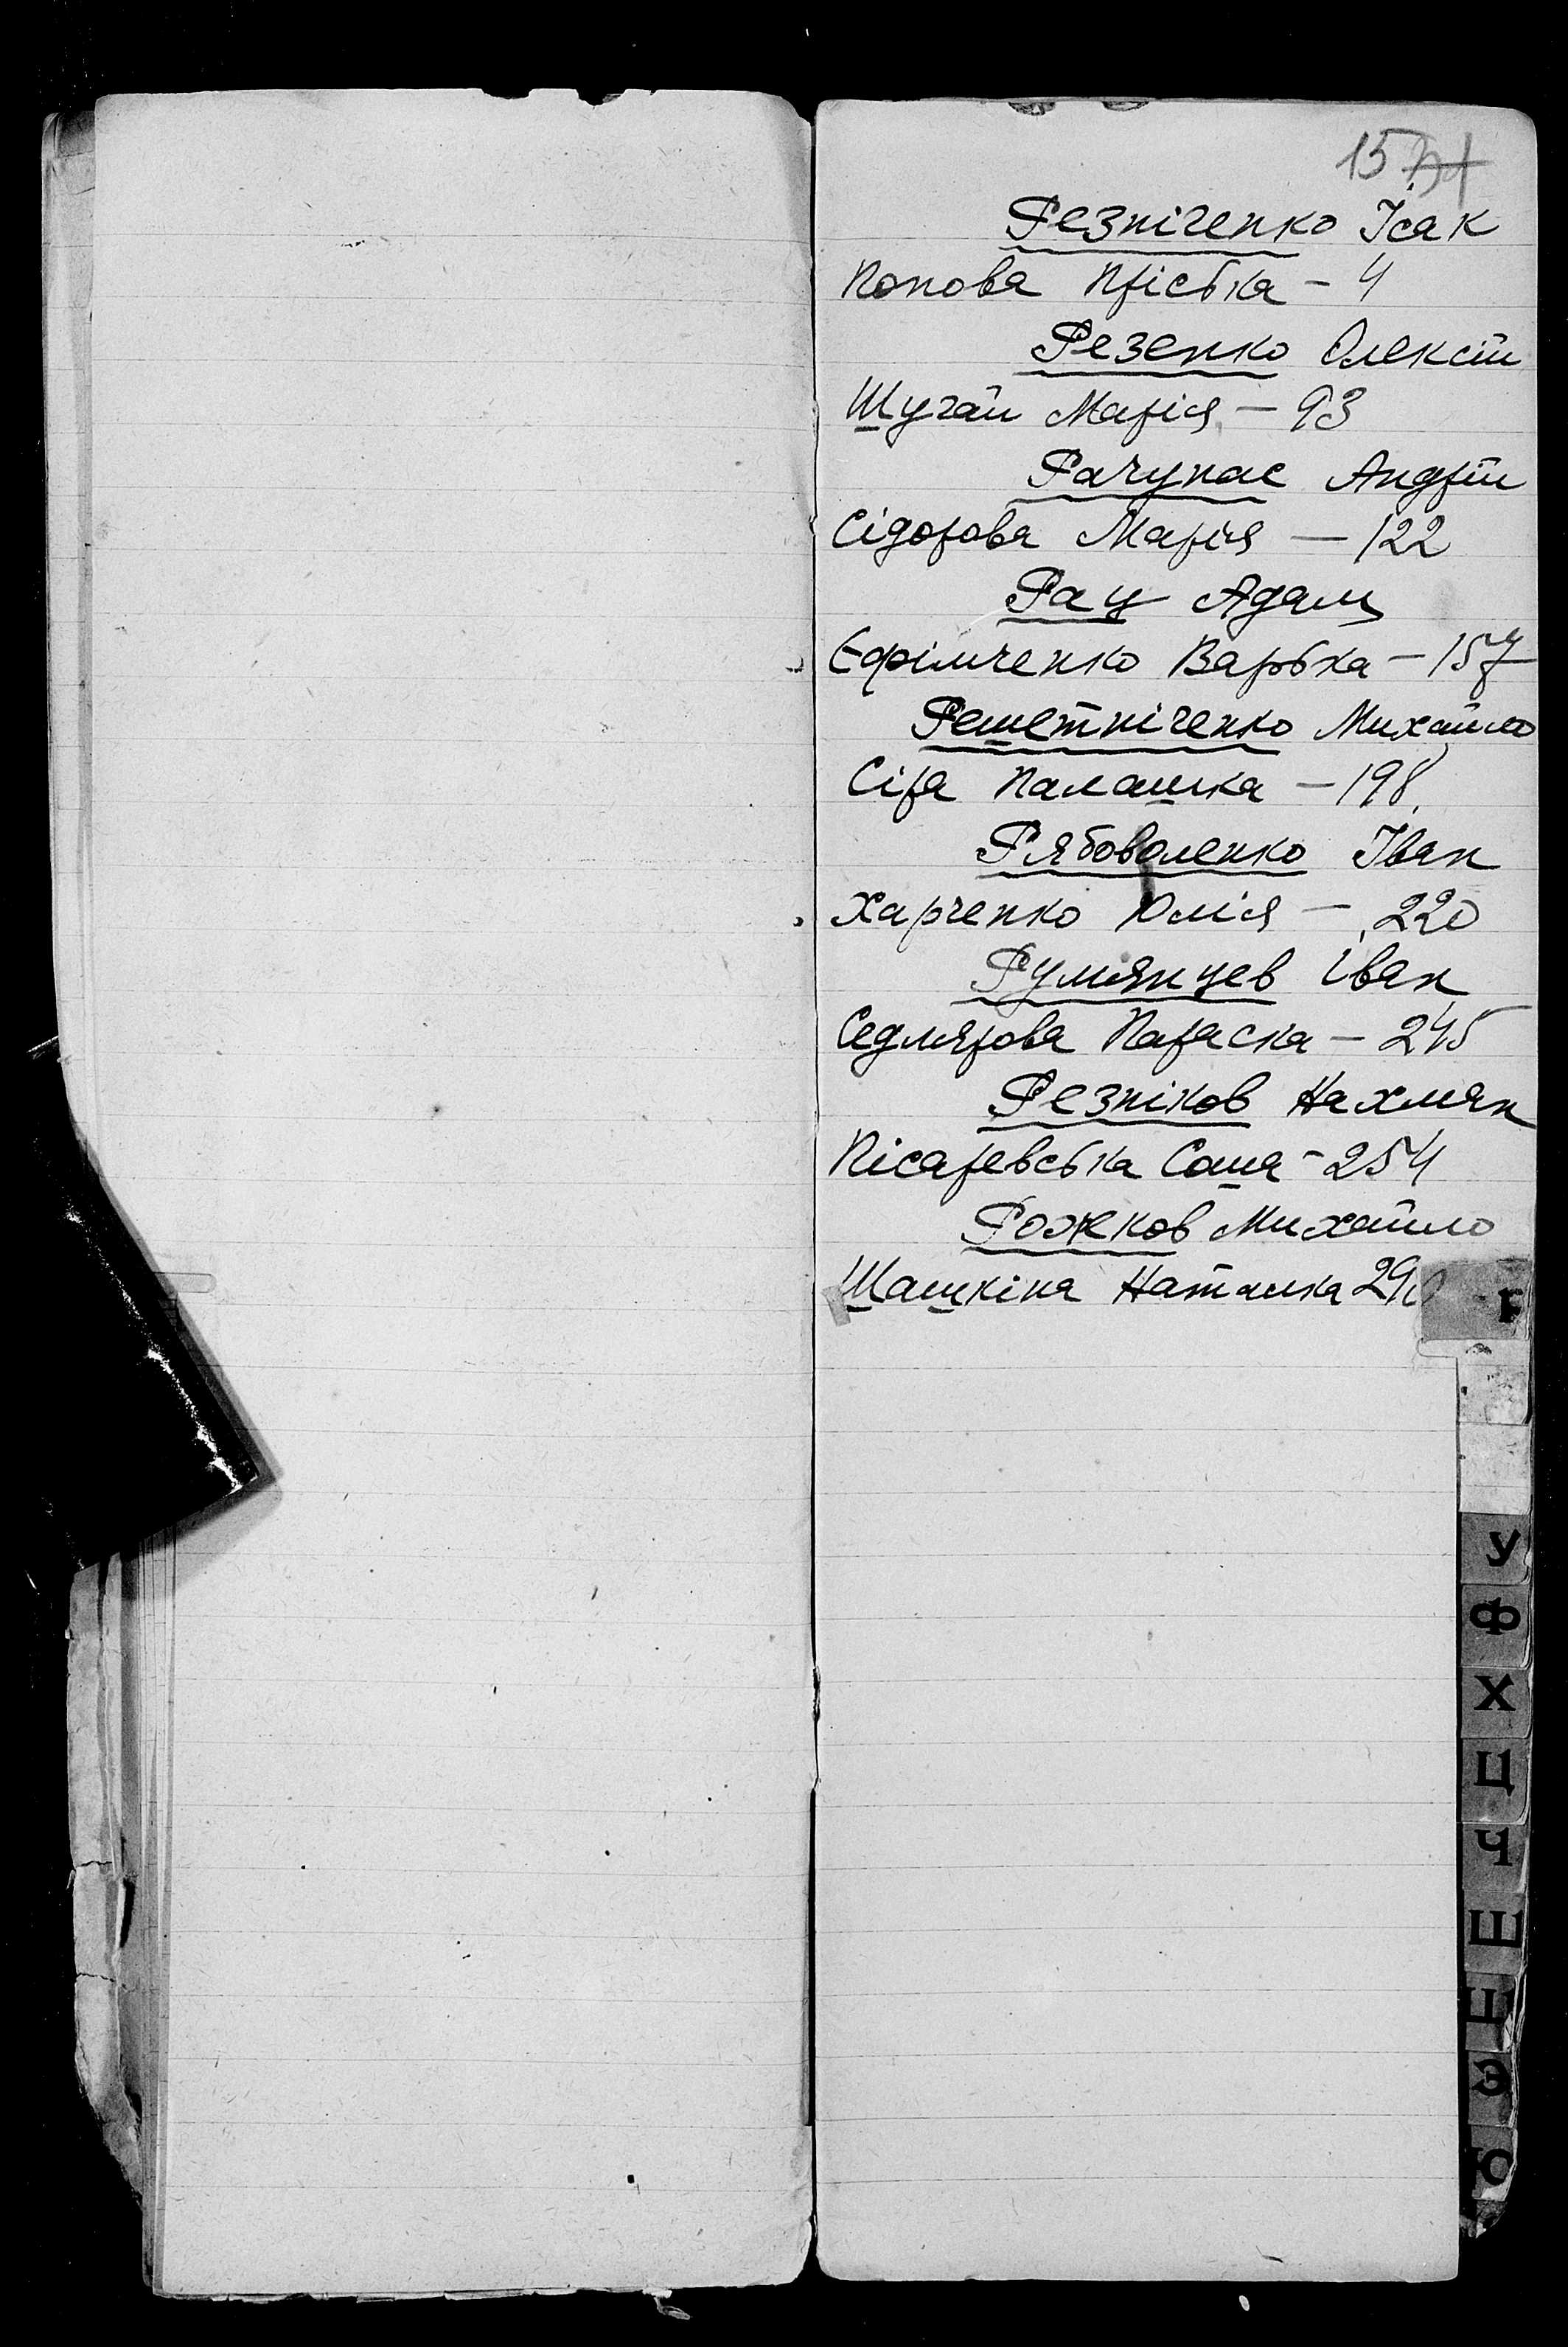 15
Резніченко Ісак
Попова Пріська – 4
Резенко Олексій
Шугай Марія – 93
Рачунас Андрій
Сідорова Марія — 122
Рац Адам
Єфімченко Варька – 157
Решетніченко Михайло
Сіра Палашка – 198
Рябоволенко Іван
Харченко Юлія – 220
Румянцев Іван
Седлярова Параска – 245
Резніков Нахман
Пісаревська Соша – 254
Рожков Михайло
Шашкіна Наташка 290
У
Ф
Х
Ц
Ч
Ш
Щ
Э
Ю